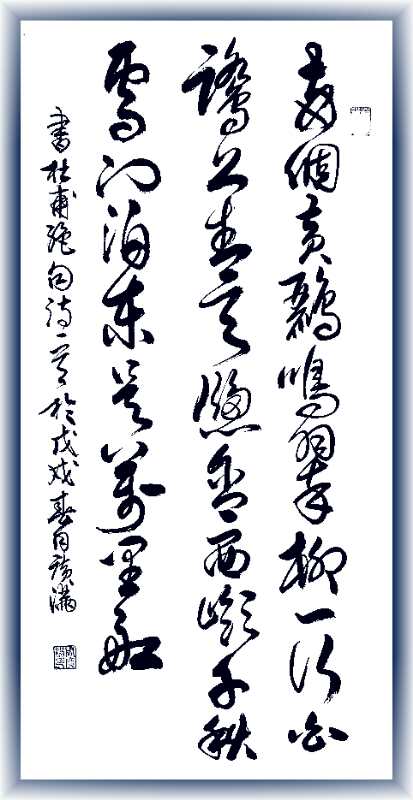 兩個黃鸝鳴翠柳一行白
鷺上青天窗含西嶺千秋
雪門泊東吳萬里船
書杜甫絕句詩一首於戊戌春月滿